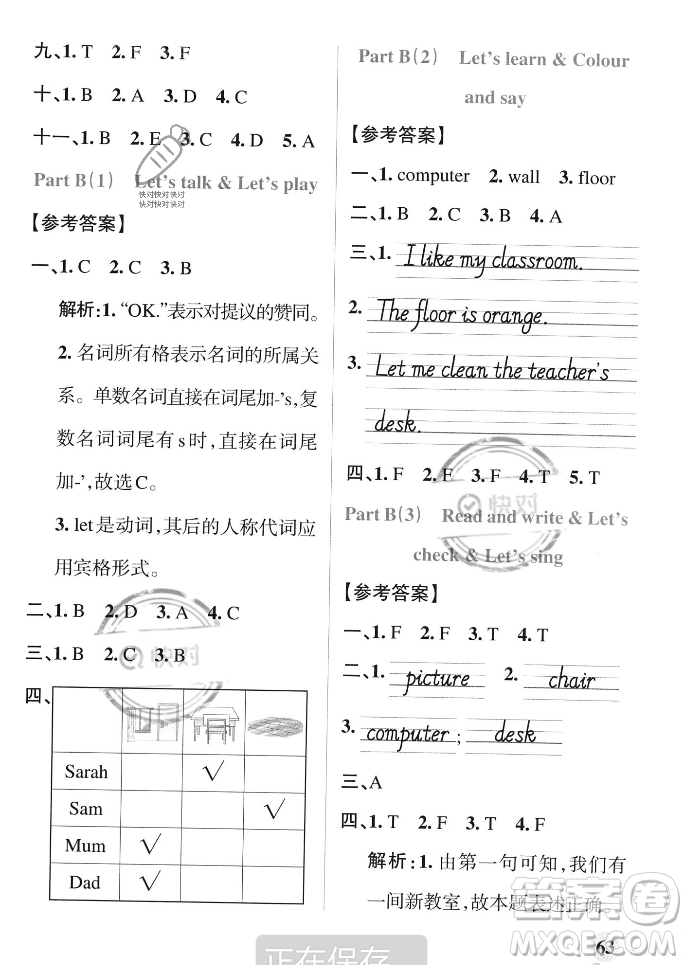 九、1. T 2. F 3. F 4. T
十、1. B 2. A 3. D 4. C
十一、1. B 2. E 3. C 4. D 5. A
Part B(1) Let's talk & Let's play
快对快对快对
快对快对快对
【参考答案】
一、1. C 2. C 3. B
解析:1.“OK.”表示对提议的赞同。
2. 名词所有格表示名词的所属关
系。单数名词直接在词尾加-'s,复
数名词词尾有s时,直接在词尾
加-',故选C。
3. let是动词,其后的人称代词应
用宾格形式。
二、1. B 2. D 3. A 4. C
三、1. B 2. C 3. B
快对
四、
Sarah √
Sam √
Mum √
Dad √
Part B(2) Let's learn & Colour
and say
【参考答案】
一、1. computer 2. wall 3. floor
二、1. B 2. C 3. A 4. C
三、1. I like my classroom.
2. The floor is orange.
3. Let me clean the teacher's
desk.
四、1. F 2. F 3. F 4. T 5. T
快对
Part B(3) Read and write & Let's
check & Let's sing
【参考答案】
一、1. F 2. F 3. T 4. T
二、1. picture 2. chair
3. computer ; desk
三、A
四、1. T 2. F 3. T 4. F
解析:1. 由第一句可知,我们有
一间新教室,故本题表述正确。
答案圈
MXQE.COM
63
正在保存